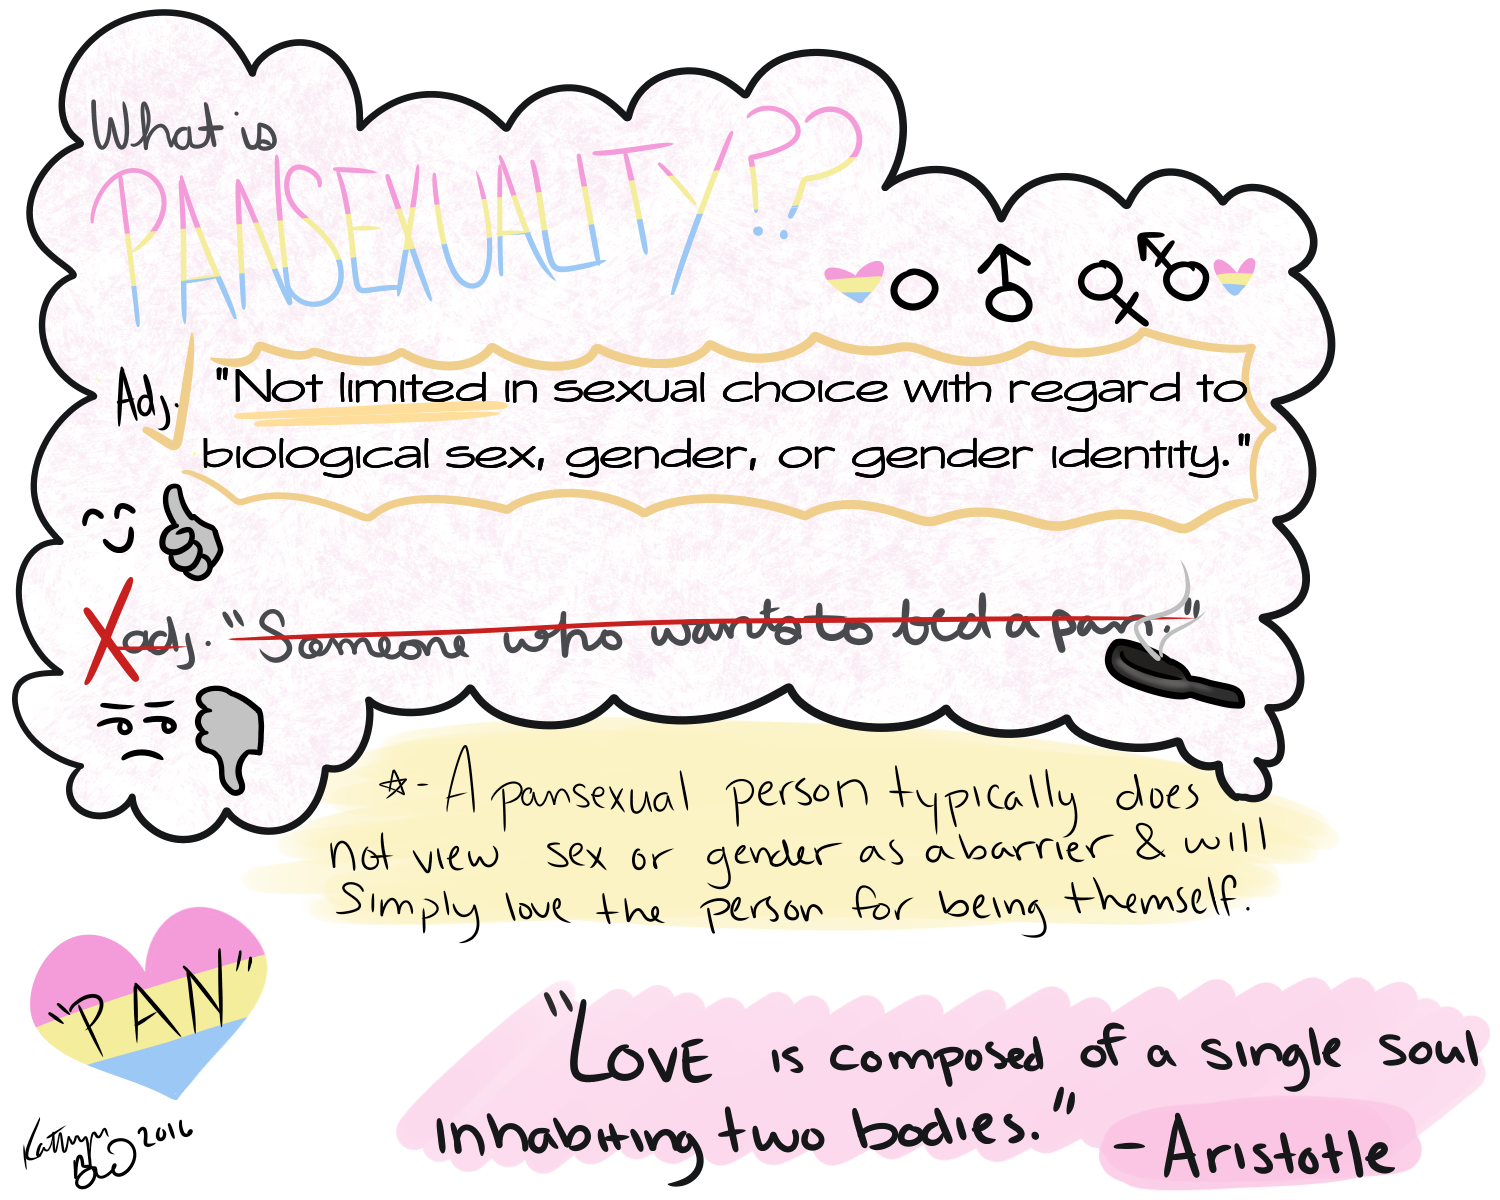 What is
PANSEXUALITY??
Adj. "Not limited in sexual choice with regard to
biological sex, gender, or gender identity."
adj. "Someone who wants to bed a pan."
☆- A pansexual person typically does
not view sex or gender as a barrier & will
simply love the person for being themself.
"PAN"
"LOVE is composed of a single soul
inhabiting two bodies."
- Aristotle
Kathryn
2016